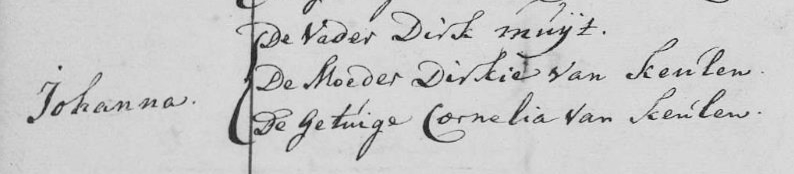 De Vader Dirk muijt.
De Moeder Dirkie van Keulen.
Johanna.
De Getuige Cornelia van Keulen.